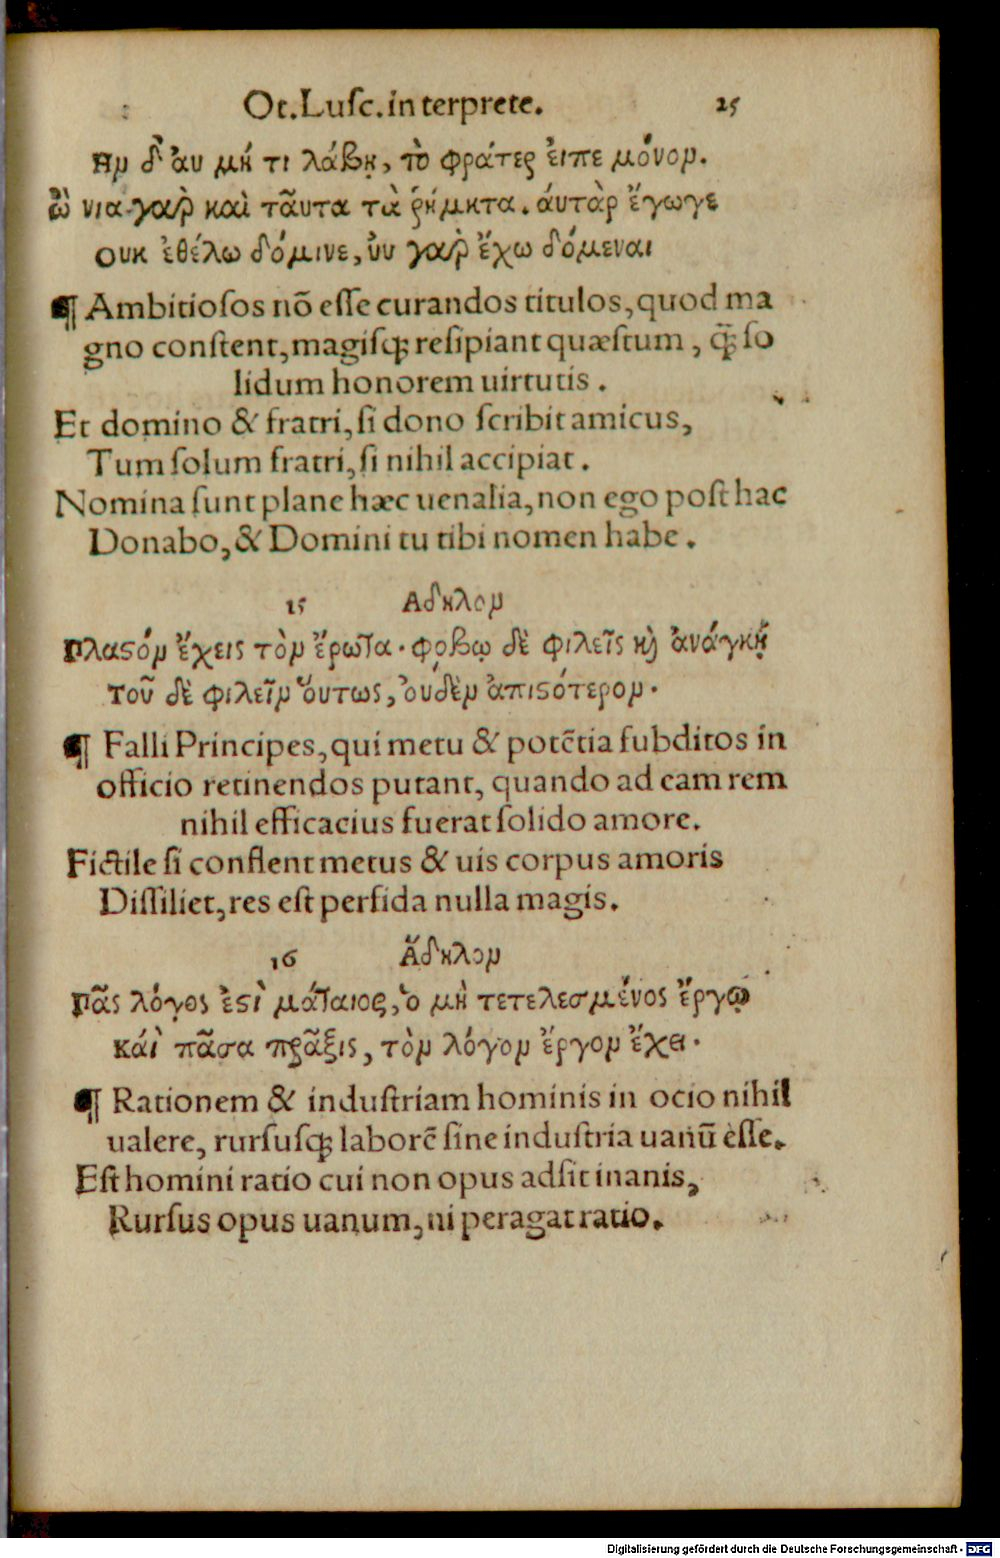 Ot. Luſc. interprete. 25
Ημ δ' ἀυ μή τι λάβῃ, τὸ φράτερ ἐιπε μόνομ.
ὢ νια γαρ̀ καὶ τᾶυτα τὰ ῥήμκτα. ἀυτὰρ ἔγωγε
Ουκ ἐθέλω δόμινε, ὐυ γαρ̀ ἔχω δόμεναι
¶ Ambitioſos nō eſſe curandos titulos, quod ma
gno conſtent, magiſqꝫ reſipiant quæſtum, q̃ꝫ ſo
lidum honorem uirtutis.
Et domino & fratri, ſi dono ſcribit amicus,
Tum ſolum fratri, ſi nihil accipiat.
Nomina ſunt plane hæc uenalia, non ego poſt hac
Donabo, & Domini tu tibi nomen habe.
15 Αδηλομ
Πλαϛόμ ἔχεις τὸμ ἔρωτα. φοβῳ δὲ φιλεῖς κὶ ἀνάγκῃ
Τοῦ δὲ φιλεῖμ ὅυτως, ὀυδὲμ ἀπιϛότερομ.
¶ Falli Principes, qui metu & potētia ſubditos in
officio retinendos putant, quando ad eam rem
nihil efficacius fuerat ſolido amore.
Fictile ſi conflent metus & uis corpus amoris
Diſſiliet, res eſt perfida nulla magis.
16 Ἄδηλομ
Πᾶς λόγος ἐϛὶ μάταιος, ὁ μὴ τετελεσμένος ἔργῳ
κάὶ πᾶσα πρᾶξις, τὸμ λόγομ ἔργομ ἔχει.
¶ Rationem & induſtriam hominis in ocio nihil
ualere, rurſuſqꝫ laborē ſine induſtria uanū eſſe.
Eſt homini ratio cui non opus adſit inanis,
Rurſus opus uanum, ni peragat ratio.
Digitalisierung gefördert durch die Deutsche Forschungsgemeinschaft - DFG